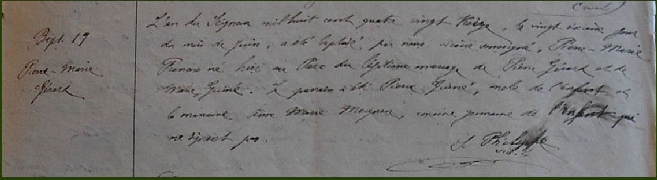 Bapt. 19
Pierre-Marie
Gérard
L'an du Seigneur mil huit cent quatre vingt treize, le vingt unième jour
du mois de Juin, a été baptisé, par nous vicaire soussigné, Pierre-Marie
né hier au du légitime mariage de Pierre Gérard et de
Marie Guirné. Le parrain a été Pierre Guirné, oncle de l'enfant et
la marraine Anne Marie cousine germaine de l'enfant qui
ne signent pas.
J. Philippe
vic.